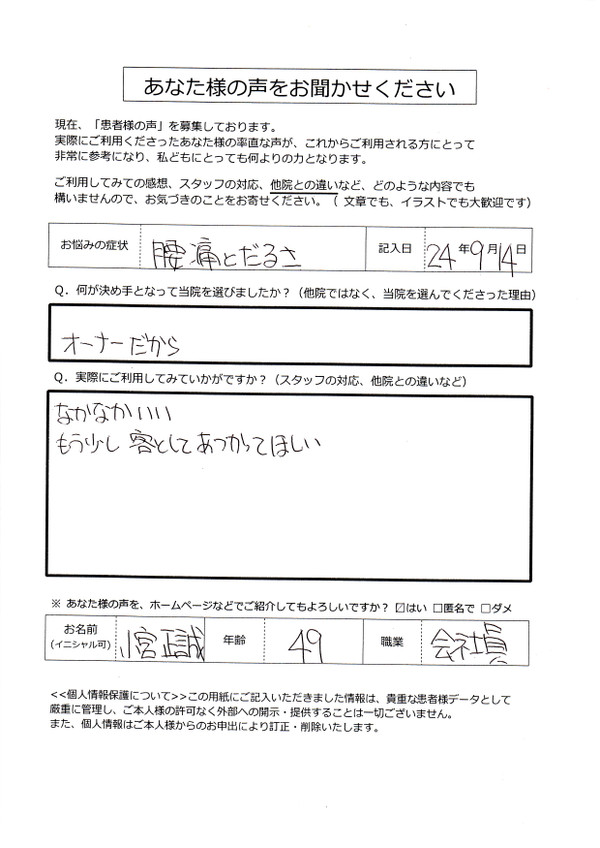 あなた様の声をお聞かせください
現在、「患者様の声」を募集しております。
実際にご利用くださったあなた様の率直な声が、これからご利用される方にとって
非常に参考になり、私どもにとっても何よりの力となります。
ご利用してみての感想、スタッフの対応、他院との違いなど、どのような内容でも
構いませんので、お気づきのことをお寄せください。（ 文章でも、イラストでも大歓迎です）
お悩みの症状 腰痛とだるさ 記入日 24年9月14日
Q．何が決め手となって当院を選びましたか？（他院ではなく、当院を選んでくださった理由）
オーナーだから
Q．実際にご利用してみていかがですか？（スタッフの対応、他院との違いなど）
なかなかいい
もう少し 客としてあつかってほしい
※ あなた様の声を、ホームページなどでご紹介してもよろしいですか？ ☑はい □匿名で □ダメ
お名前 (イニシャル可) 小宮 正誠 年齢 49 職業 会社員
<<個人情報保護について>>この用紙にご記入いただきました情報は、貴重な患者様データとして
厳重に管理し、ご本人様の許可なく外部への開示・提供することは一切ございません。
また、個人情報はご本人様からのお申出により訂正・削除いたします。